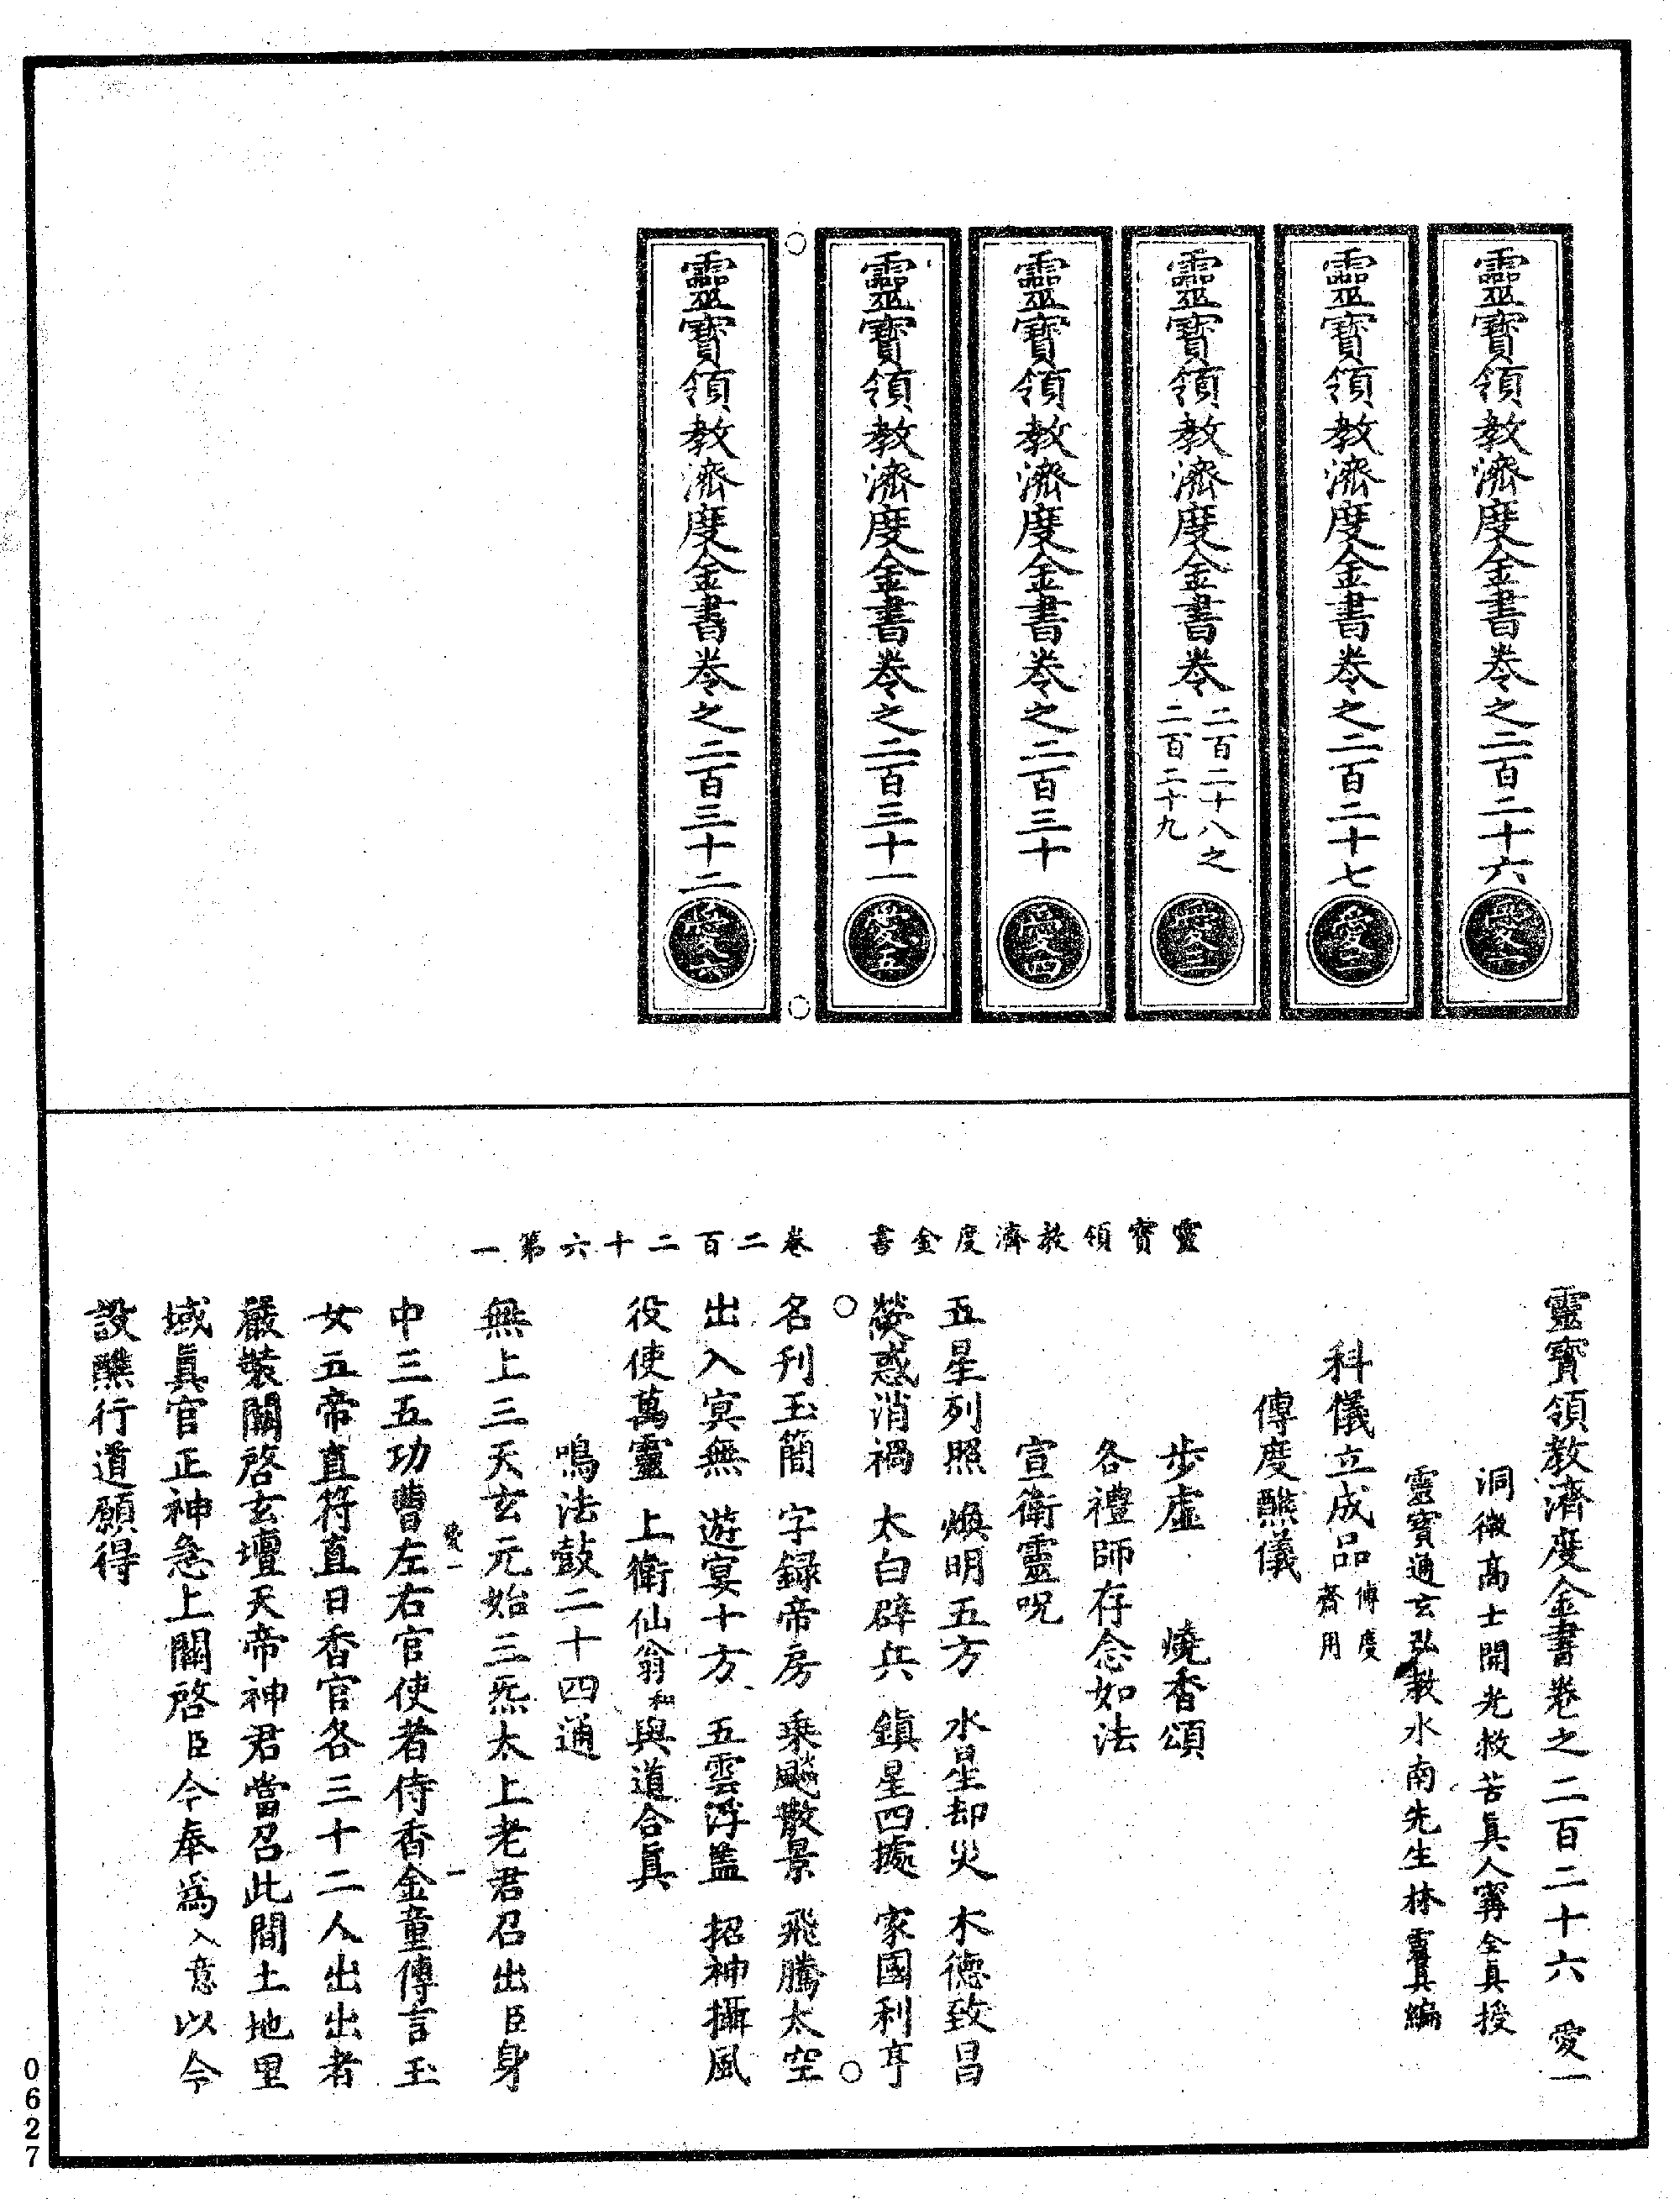 靈寶領教濟度金書卷之二百二十六 愛一
靈寶領教濟度金書卷之二百二十七 愛二
靈寶領教濟度金書卷二百二十八之二百二十九 愛三
靈寶領教濟度金書卷之二百三十 愛四
靈寶領教濟度金書卷之二百三十一 愛五
靈寶領教濟度金書卷之二百三十二 愛六
靈寶領教濟度金書 卷二百二十六第一
靈寶領教濟度金書卷之二百二十六 愛一
洞微高士開光救苦真人寗全真授
靈寶通玄弘教水南先生林靈真編
科儀立成品傳度齋用
傳度醮儀
步虛 燒香頌
各禮師存念如法
宣衛靈呪
五星列照 煥明五方 水星却災 木德致昌
熒惑消禍 太白辟兵 鎮星四據 家國利亨
名刊玉簡 字録帝房 乘飈散景 飛騰太空
出入冥無 遊宴十方 五雲浮蓋 招神攝風
役使萬靈 上衛仙翁和與道合真
鳴法鼓二十四通
無上三天玄元始三炁太上老君召出臣身
愛一 一
中三五功曹左右官使者侍香金童傳言玉
女五帝直符直日香官各三十二人出出者
嚴裝關啓玄壇天帝神君當召此間土地里
域真官正神急上關啓臣今奉為入意以今
設醮行道願得
0627